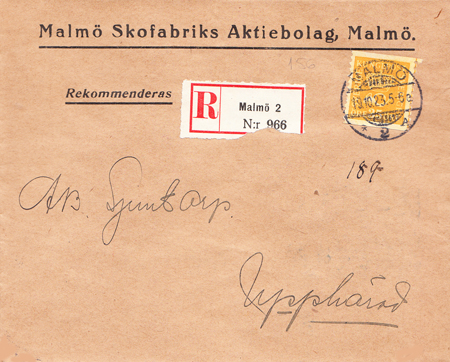 Malmö Skofabriks Aktiebolag, Malmö.
Rekommenderas
R
Malmö 2
N:r 966
MALMÖ
10.10.23.5-6 e
2
A
189
AB. Ljuntorp.
Upphärad